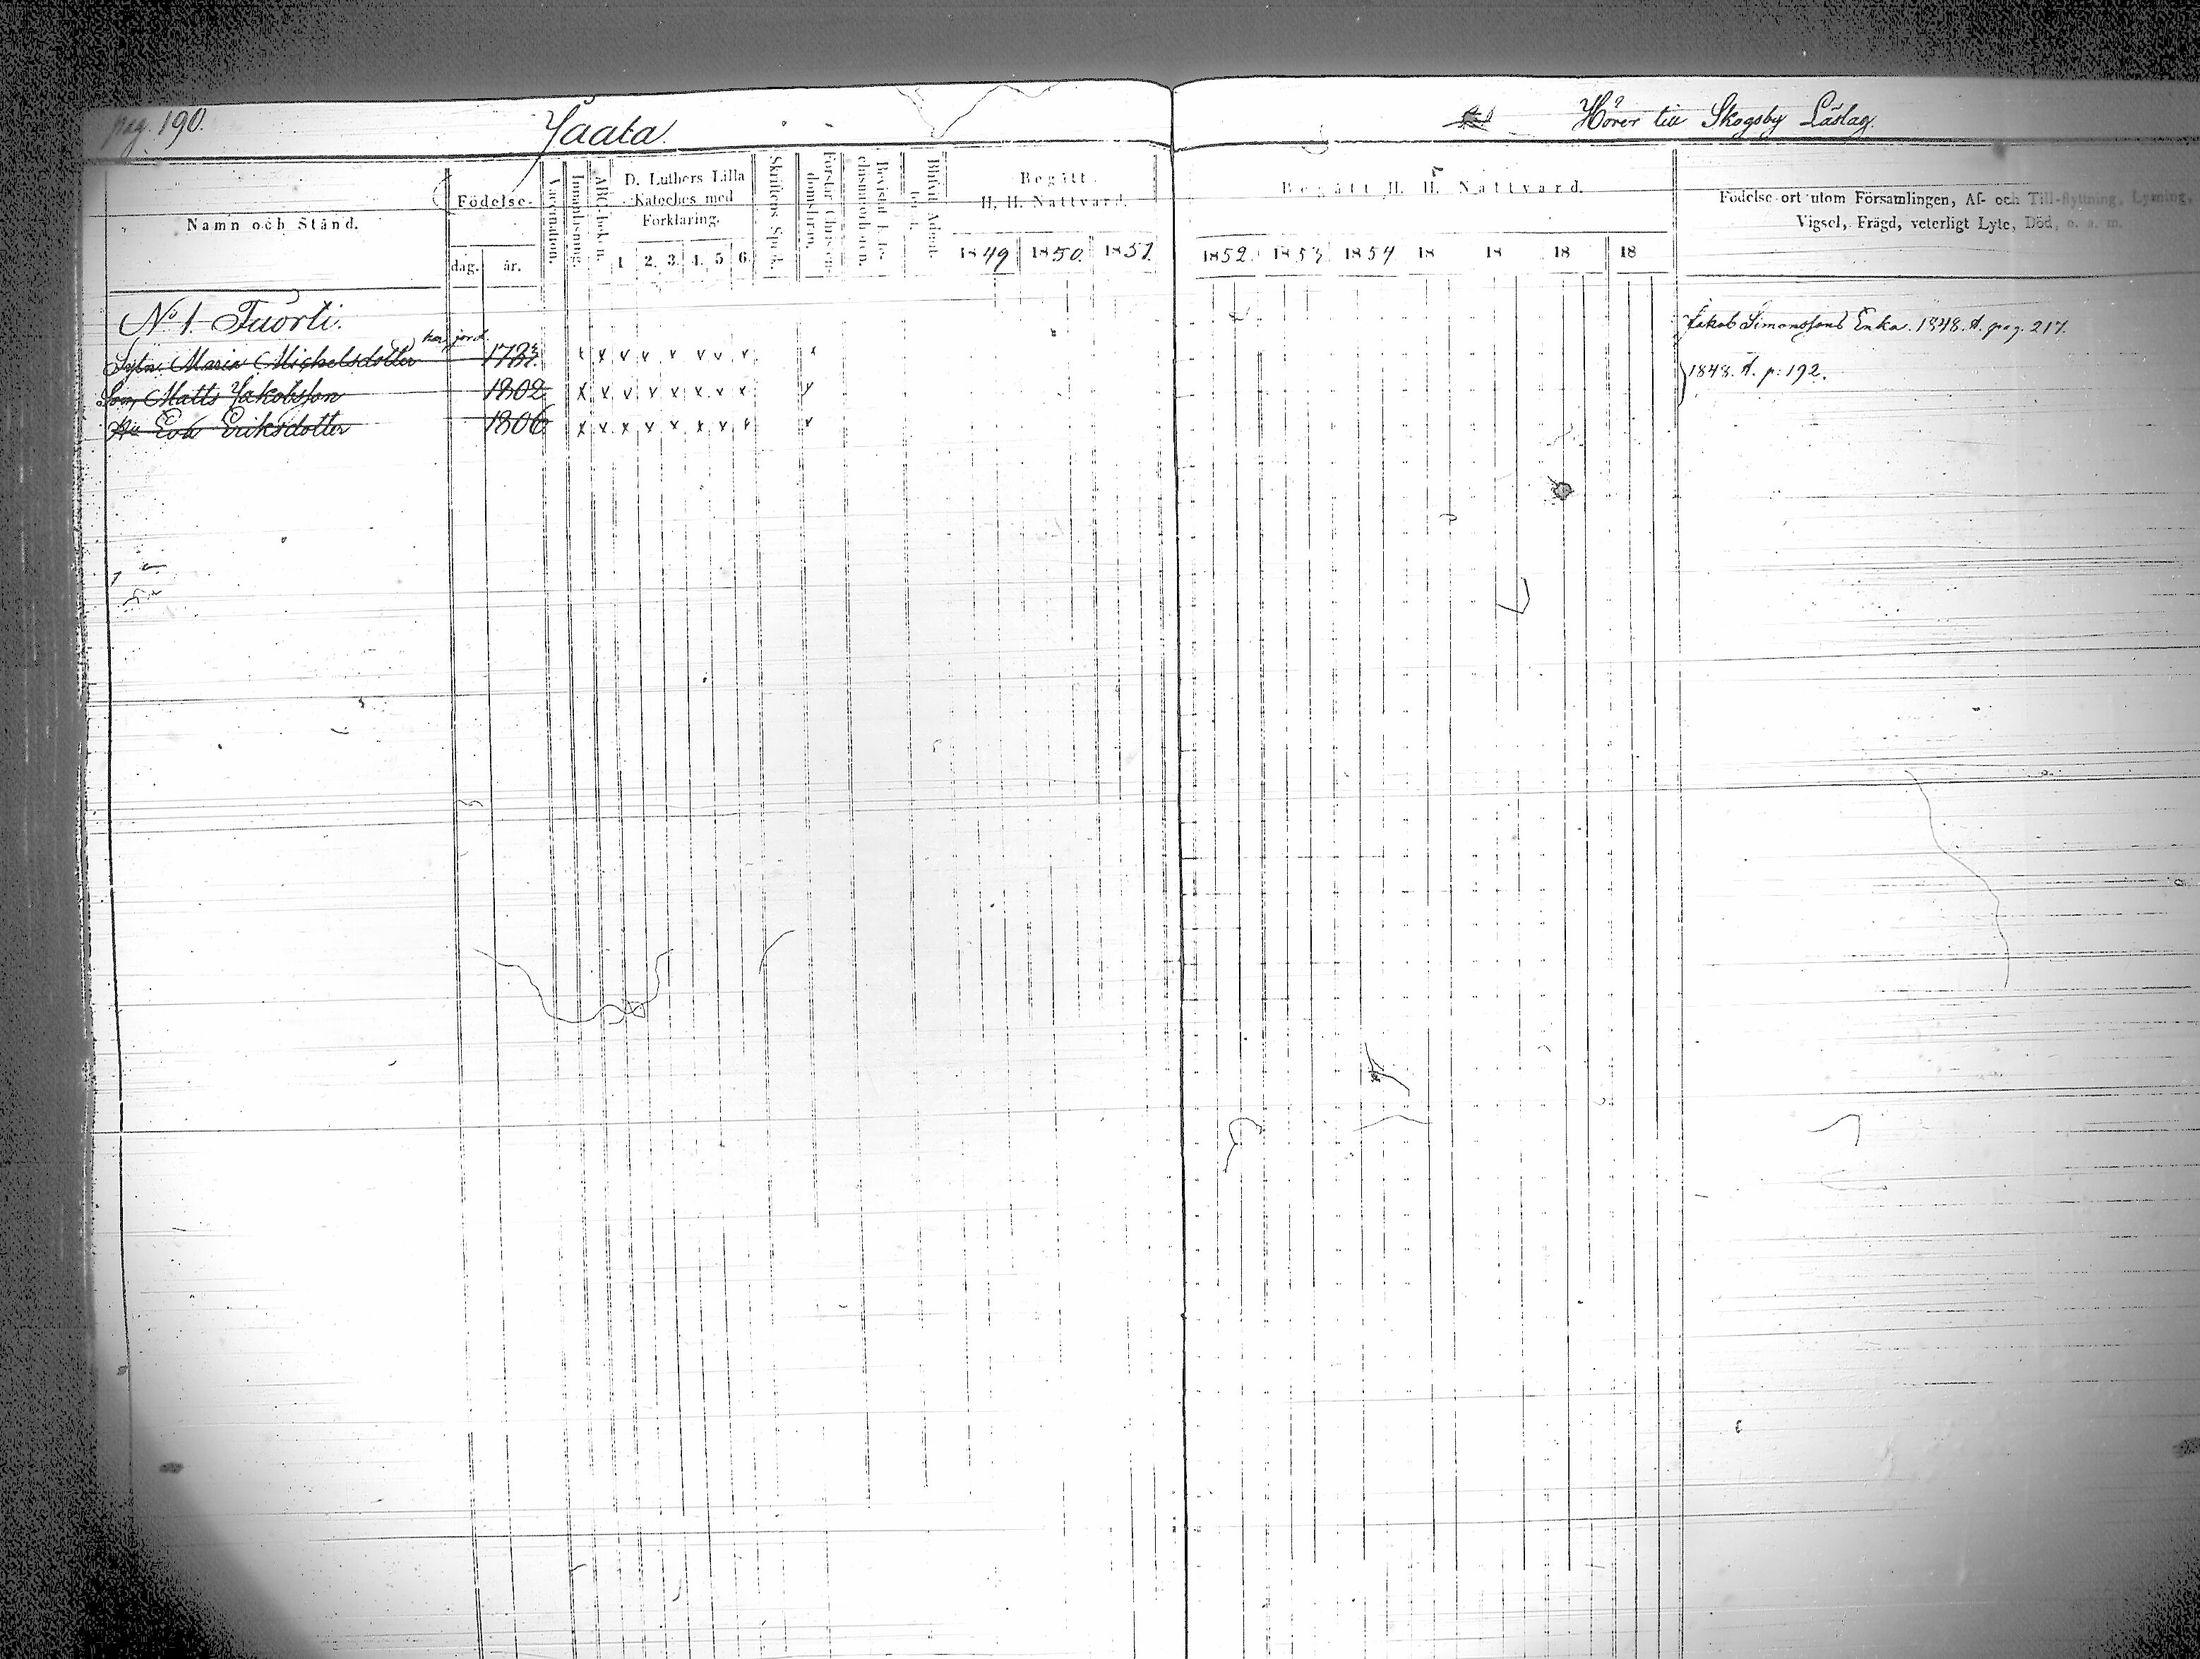 pag. 190.
Jaata.
Hörer till Skogsby Läslag.
Namn och Stånd.
Födelse-
dag.
år.
Vaccination.
Innanläsning.
ABC-boken.
D. Luthers Lilla
Kateches med
Förklaring.
1 2. 3. 4. 5 6.
Skriftens Språk.
Begått
H. H. Nattvard.
1849 1850 1851.
Begått H. H. Nattvard.
1852. 1853 1854 18 18 18 18
Födelse-ort utom Församlingen, Af- och Till-flyttning, Lysning,
Vigsel, Frägd, veterligt Lyte, Död, o. a. m.
No 1. Tuorti.
Jakob Simonssons Enka. 1848. A. pag. 217.
har jord
Maria Michelsdotter
Son, Matts Jakobsson 1802
1848. A. p: 192.
Hu Eva Eriksdotter 1806